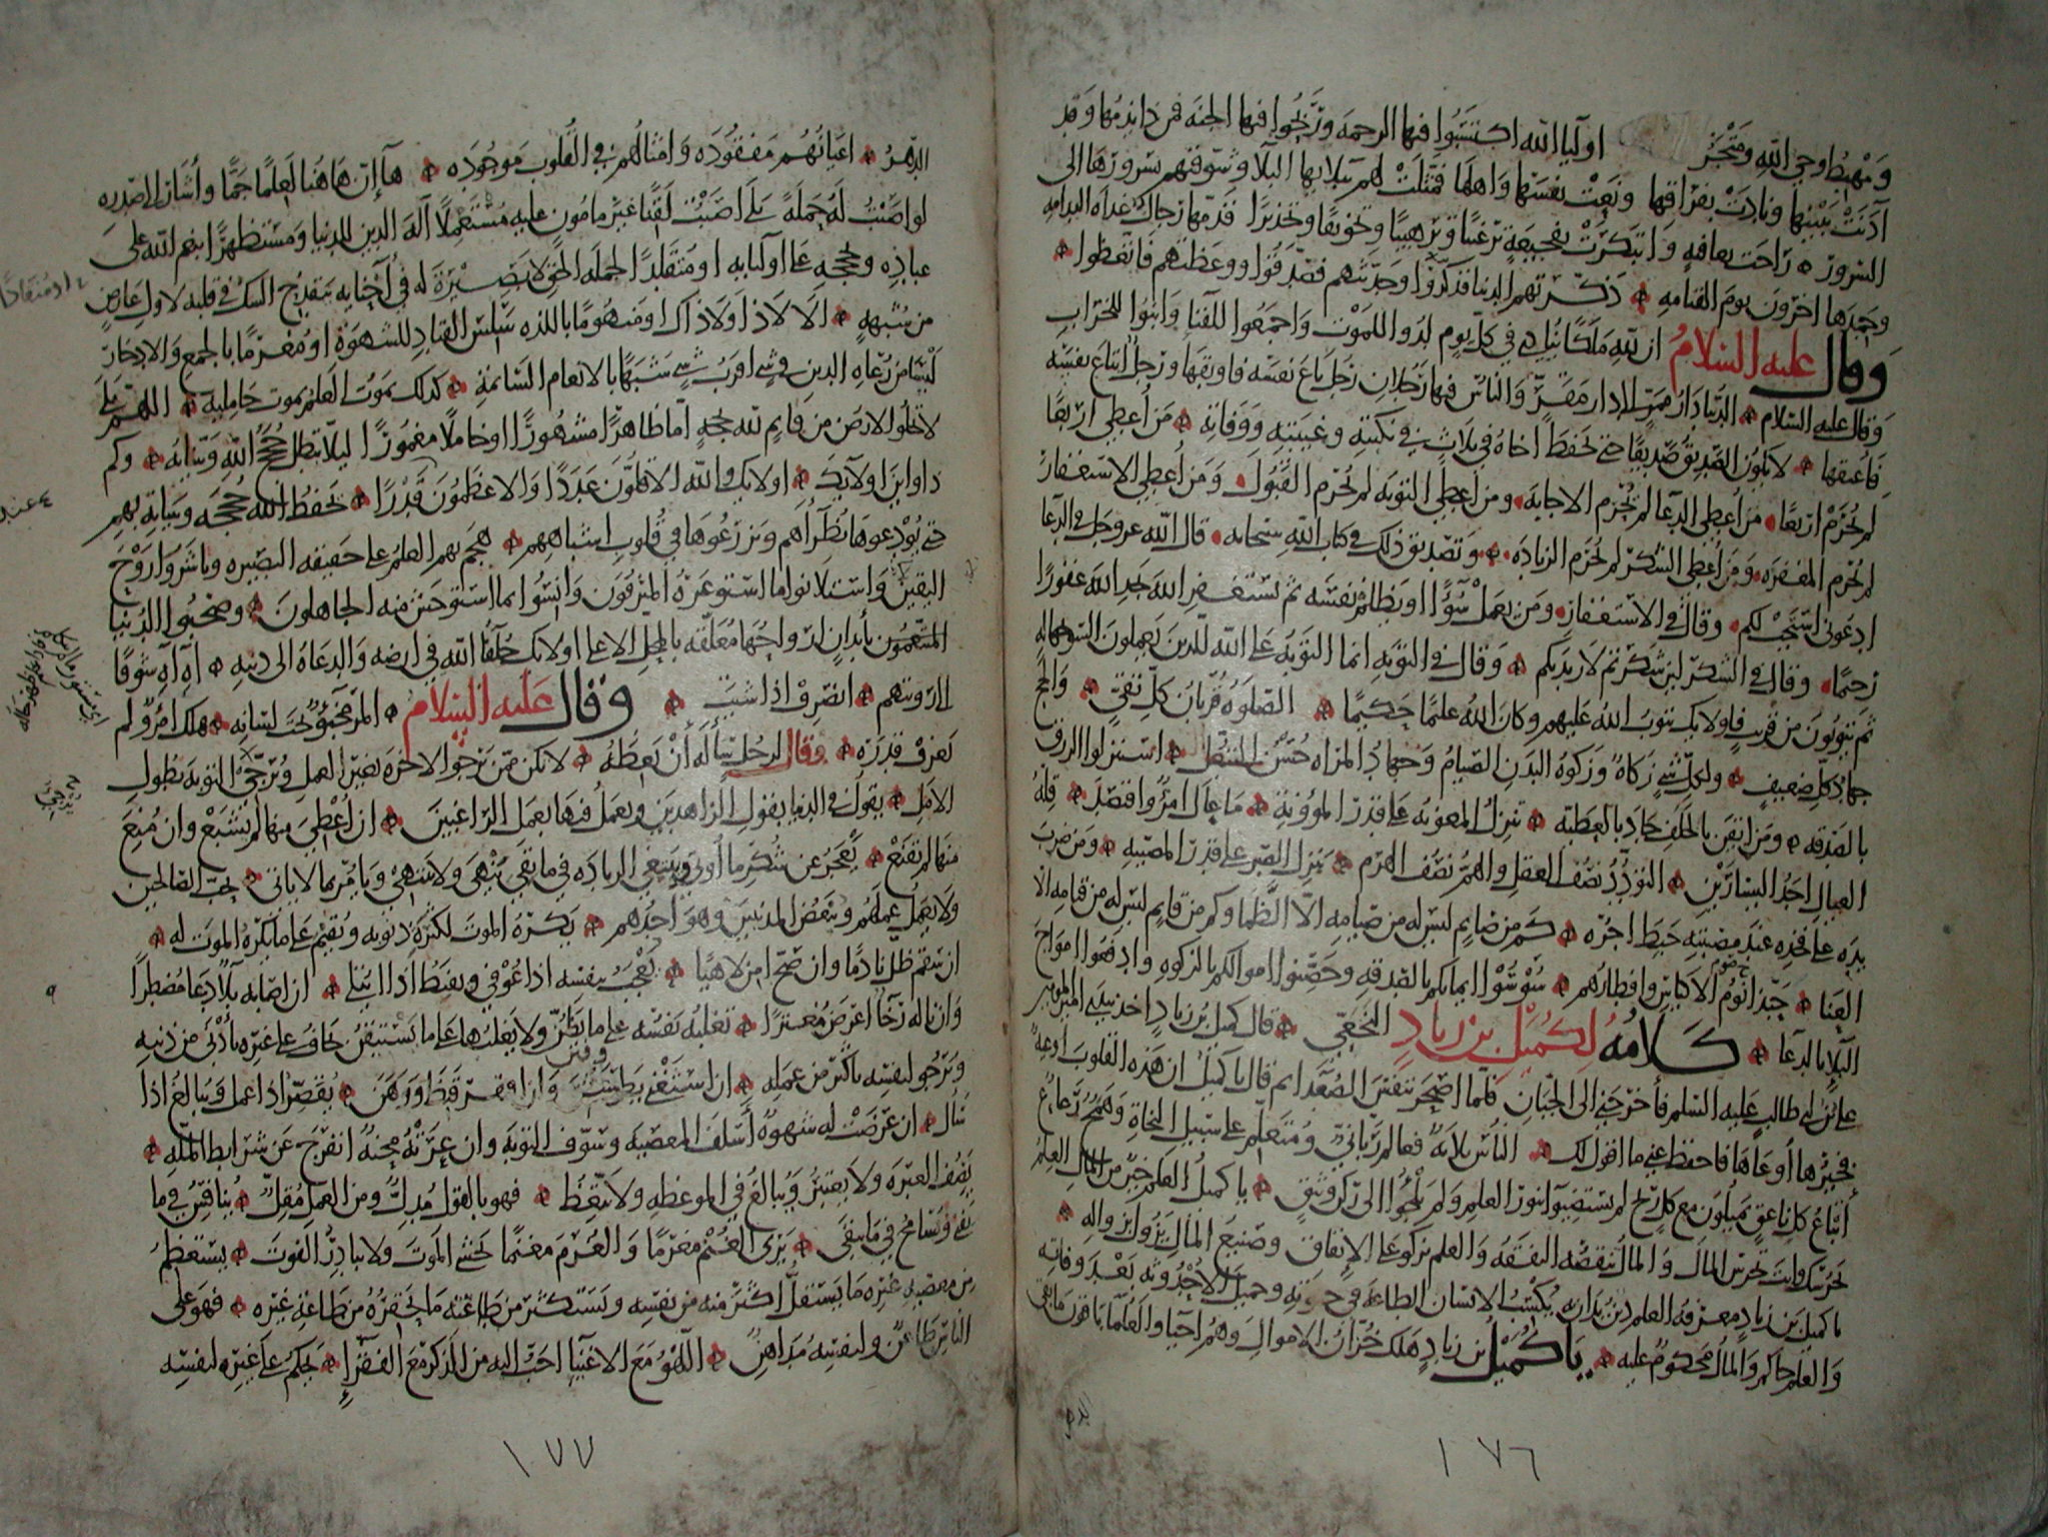 وَمَهْبِطُ وحي اللّهِ ومَتْجَرُ اولياء اللّه اكتسَبُوا فيها الرحمه ورَبِحُوا فيها الجنه فمن ذا يذمها وقد
آذنَتْ ببَيْنِها ونادَتْ بفراقها ونعَتْ نفسَها واهلها فمثلَتْ لهم ببلائها البلا وشوقتهم بسرورها الى
السرور راحَت بعافيهٍ وابتكرَتْ بفجيعةٍ ترغيبًا وترهيبًا وتخويفًا وتحذيرًا فذمّها رجال غداه الندامه
وحمدها اخرون يوم القيامه ذكّرتهم الدنيا فذكّروا وحدّثتهم فصدّقوا ووعظتهم فاتّعظوا
وقال عليه السلامُ ان للّهِ ملَكًا يُنادي في كل يوم لِدُوا للمَوْت واجمعوا للفنا وابنُوا للخراب
وقال عليه السلام الدنيا دارُ ممرّ الى دار مقرٍّ والناس فيها رَجُلان رَجل باع نفسَه فاوبقها ورجلُ ابتاع نفسَه
فاعتقها لا يكون الصديق صديقًا حتى يحفظ اخاهُ في ثلاثٍ في نكبتِه وغيبتِه ووفاته من اُعطِي اربعًا
لم يُحرَمْ اربعًا من اُعطِي الدعا لم يُحرَم الاجابه ومن اُعطِي التوبه لم يُحرَم القبولَ ومَن اُعطِي الاستغفارَ
لم يُحرَم المغفره ومن اُعطِي الشكر لم يُحرَم الزياده وتصديق ذلك في كتاب اللّهِ سبحانه قال اللّه عز وجل في الدعا
ادعونى استجب لكم وقال في الاستغفار ومن يعمل سُوءًا او يظلم نفسَه ثم يستغفرِ اللّهَ يجدِ اللّهَ غفورًا
رحيمًا وقال في الشكر لئن شكرتم لازيدنكم وقال في التوبه انما التوبه على اللّه للذين يعملون السوء بجهاله
ثم يتوبون من قريب فاولئك يتوب اللّهُ عليهم وكان اللّهُ عليمًا حكيمًا الصلوه قُربانُ كلّ تقيٍّ والحج
جهادُ كلِّ ضعيفٍ ولكلّ شيءٍ زكاهٌ وزكوه البدن الصيامُ وجهادُ المراه حُسْنُ التبعّل استنزلوا الرزق
بالصدقه ومن ايقن بالخلف جاد بالعطيه تنزل المعونه على قدر المؤونه ما عال امرُؤٌ اقتصد قِلّهُ
العيال احدُ اليسارَيْن التودّدُ نصْف العقل والهمُّ نصف الهرم ينزل الصبر على قدر المصيبه ومن ضرب
يده على فخذه عند مصيبتِه حَبِط اجرُه كم من صايمٍ ليس له من صيامه الّا الظّما وكم من قايمٍ ليس له من قيامه الّا
العَنا حبّذا نومُ الاكياسِ وافطارُهم سُوسُوا ايمانكم بالصدقه وحَصِّنوا اموالكم بالزكوه وادفعوا امواج
البلا بالدعا كلامُهُ لكُمَيْل بن زيادٍ النخعِي قال كميل بن زيادٍ اخذ بيدي امير المومنين
على بن ابي طالب عليه السّلم فأخرجني الى الجبّان فلما اصحر تنفس الصُّعَدا ثم قال يا كميل ان هذه القلوب اوعيهٌ
فخيرُها أوعاها فاحفظ عنى ما اقول لك الناس ثلاثهٌ فعالم ربّانىٌّ ومُتعلّم على سبيل النجاة وهَمَجٌ رَعاعٌ
أتباعُ كل ناعقٍ يميلون مع كل ريح لم يستضِيؤا بنور العلم ولم يلجُؤا الى ركن وثيق يا كميلُ العلم خيرٌ من المال العلمُ
يحرسك وانت تحرس المال والمالُ تنقصُه النفقهُ والعلم يزكو على الانفاق وصنيع المال يَزُول بزواله
يا كميل بن زيادٍ معرفه العلم دينٌ يُدان به يكسب الانسان الطاعه في حيوته وجميلَ الاُحْدُوثه بَعْد وفاته
والعلم حاكم والمال محكومٌ عليه يا كُمَيْل بن زيادٍ هلك خُزّانُ الاموالِ وهُم احيا والعُلما باقون ما بقي
الدهر
١٧٦
الدّهرُ اعيانُهُم مفقُودَه وامثالُهُم في القلوب موجوده ها إنّ هاهُنا لَعلمًا جمًّا وأشار الى صدره
لو اصَبْتُ له حَمَلهً بَلَى اصَبْت لقِنًا غير مامون عليه مُسْتعمِلًا آلهَ الدين للدنيا ومستظهرًا بنعم اللّه على
عبادِهِ وبحُججه على اوليائه او مُنقلدًا لحمله الحق لا بَصِيرَة له في أحنائه ينقدحُ الشك في قلبه لاول عارضٍ
او منقادًا
من شُبهةٍ الَا لا ذا ولا ذاك او منهومًا باللذه سَلِسَ القياد للشهوة او مُغرَمًا بالجمع والادخار
لَيْسا من رُعاه الدين في شي اقربُ شيء شبهًا بهما الانعام السّائمة كذلك يموت العلم بموت حامليه اللهم بلى
لا تخلوا الارض من قايم للّه بحُجّه امّا ظاهرًا مشهورًا او خاملًا مغمورًا ليلّا تبطل حُججُ اللّه وبيّناتُه وكم
ذا واين اولائك اولائك واللّه الاقلّون عددًا والاعظمون قدرًا يحفظ اللّه حُججه وبيناته بهم
حتى يُوْدِعوها نُظراءهم ويزرعُوها في قُلوب اشباههم هجم بهم العلم على حقيقه البصيره وباشَروا رَوْحَ
اليقين واستلانوا ما استوعره المترفون وانِسُوا بما استوحش منه الجاهلون وصحبُوا الدنيا
بأبدانٍ ارواحُها مُعلّقه بالمحلّ الاعلى اولائك خُلَفآء اللّه في ارضه والدعاه الى دينه آه آه شوقًا
الى رؤيتهم انصرف اذا شئت وقال عَليه السلام المرء مخبُوٌّ تحت لسانه هلك امرُؤٌ لم
يَعرف قدرَه وقال لرجُل سألَه أن يَعِظَهُ لا تكن ممن يَرجُوا الاخره بغير العمل ويُرَجّي التوبه بطول
الامل يقول في الدنيا بقول الزاهدين ويعمل فيها بعمل الراغبين ان اُعطِيَ منها لم يشبعْ وان مُنعَ
منها لم يقنَع يَعْجزُ عن شكر ما أوتي ويبتغي الزياده في ما بقي ينهى ولا ينتهي ويامُر بما لا ياتى يحب الصالحين
ولا يعمل عملهم ويُبغض المذنبين وهو احدُهم يكره الموت لكثرة ذنوبه ويقيم على ما يكره الموت له
ان سقم ظل نادمًا وان صَحَّ امن لاهيًا يُعْجَب بنفسه اذا عُوْفي ويقنَطُ اذا ابتُلي ان اصابه بَلاءٌ دَعا مُضطرًّا
وان ناله رَخآءٌ اعرض مُغترًّا تغلبه نفسُه على ما يظُنّ ولا يغلبُها على ما يَسْتيقن يخافُ على غيره بأدْنى من ذنبه
ويَرجُو لنفسِه باكثر من عمله ان استغنى بَطِر وفُتن وان افتقر قنط ووَهَن يُقصّر اذا عمل ويبالغُ اذا
سَال ان عَرَضَت له شهوهٌ أسلف المعصيه وسوّف التوبه وان عَرَتْه محنهٌ انفرج عن شرايط الملّه
يَصِفُ العبره ولا يعتبرُ ويُبالغ في الموعظه ولا يتّعِظ فهو بالقول مُدِلٌّ ومن العمل مُقِلٌّ يُنافسُ في ما
يفنى ويُسامح في ما يبقى يَرى الغُنْم مغرمًا والغُرمَ مغنمًا يخشى الموتَ ولا يبادِرُ الفوتَ يستعظمُ
من معصيه غيره ما يستقلُّ اكثر منه من نفسه ويستكثر من طاعته ما يحقرُهُ من طاعة غيره فهو على
الناس طاعنٌ ولنفسه مُداهنٌ اللّهْوُ مع الاغنيآء احبّ اليه من الذكر مع الفقرآءِ يحكم على غيره لنفسِه
١٧٧